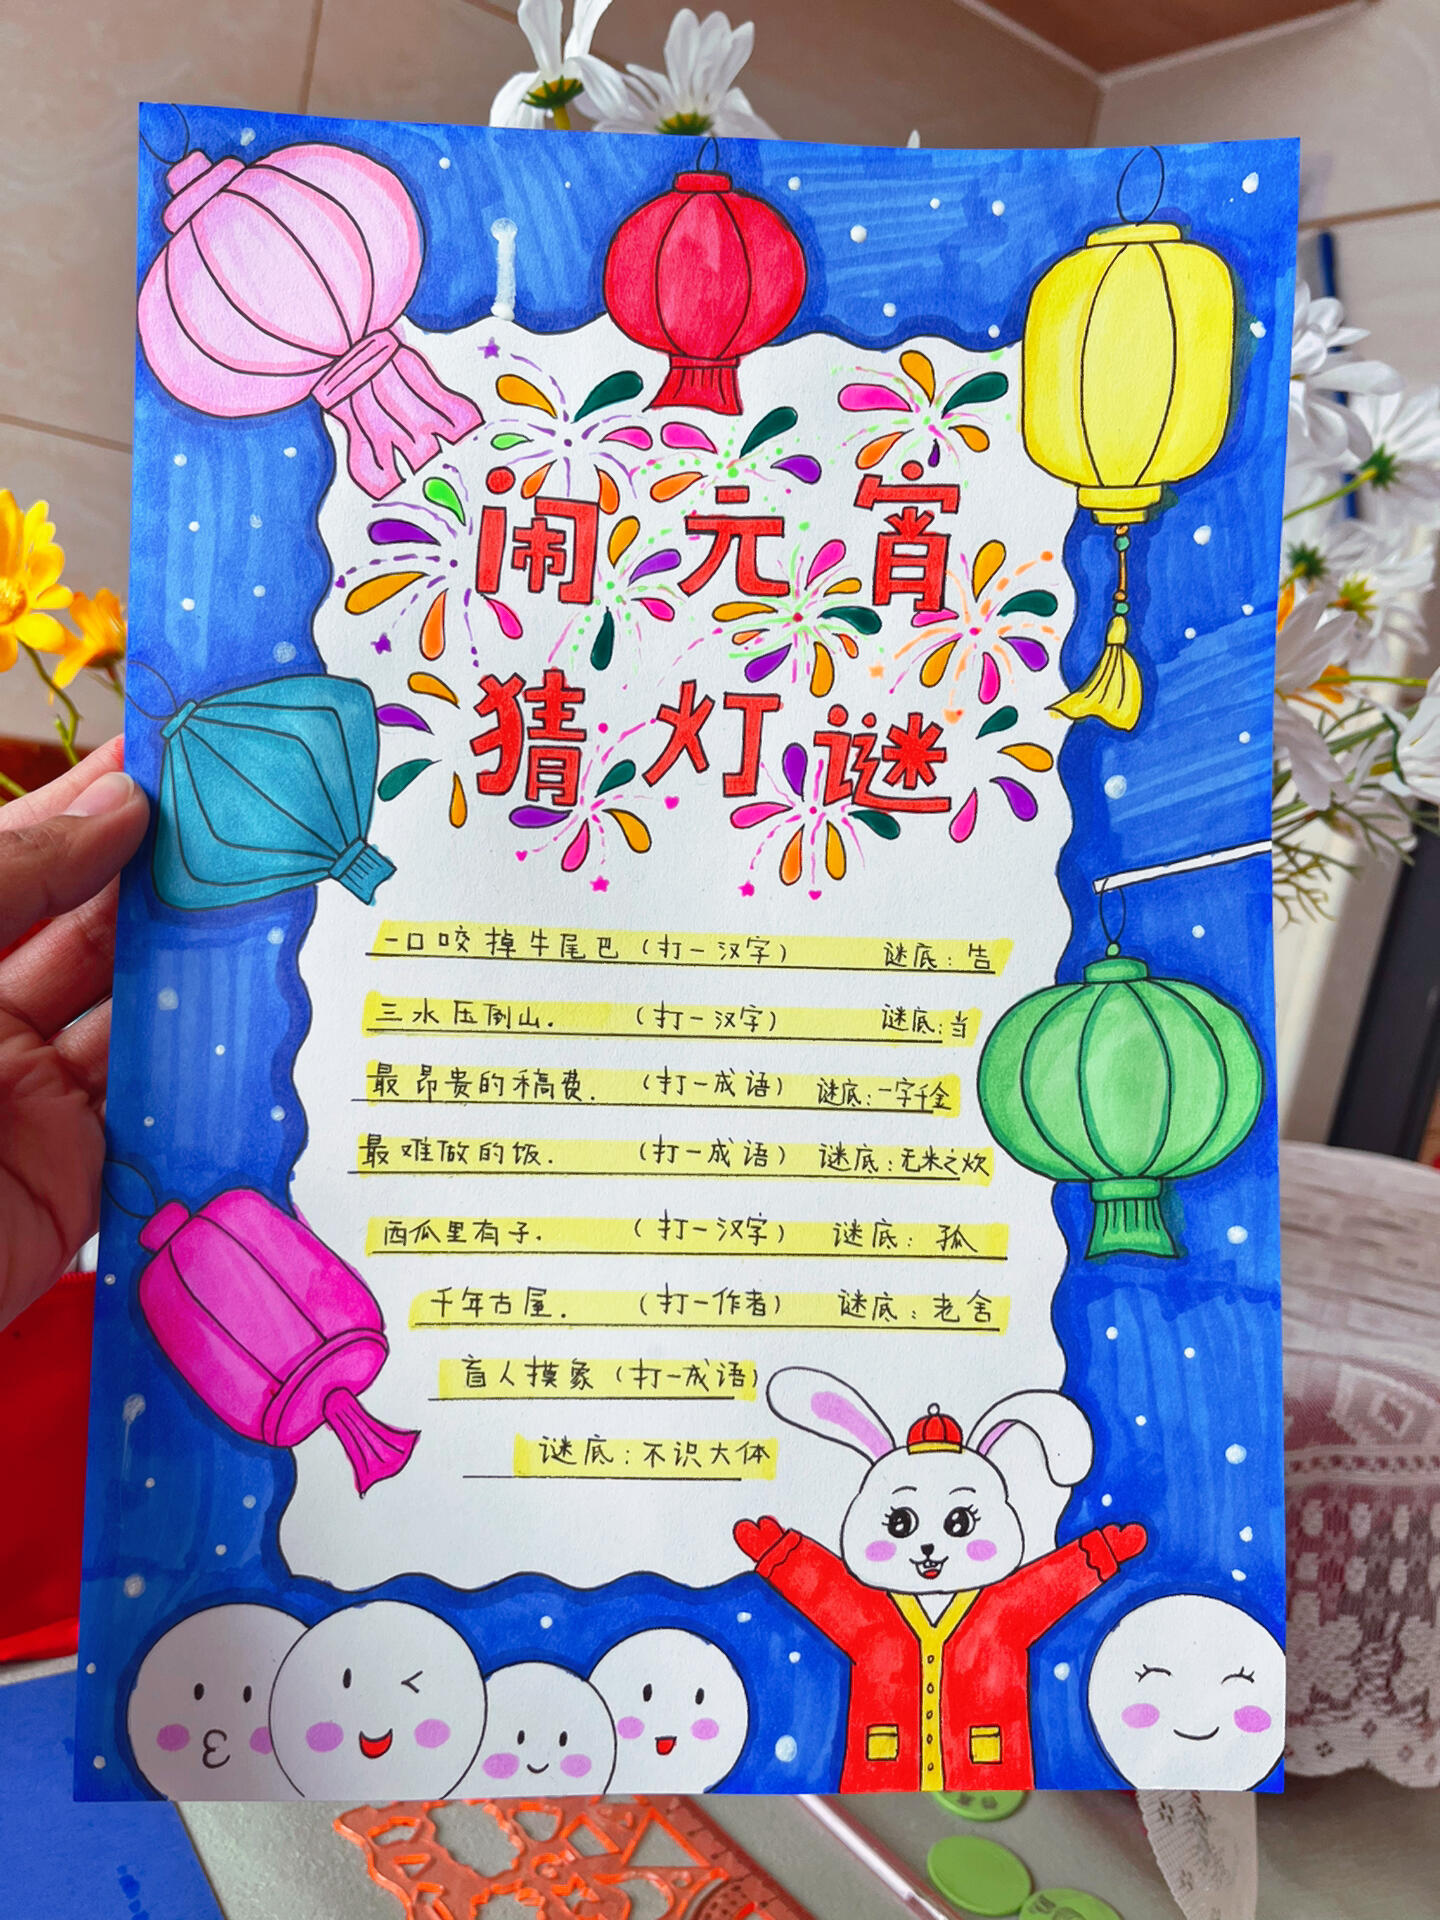 闹元宵
猜灯谜
一口咬掉牛尾巴(打一汉字) 谜底:告
三水压倒山. (打一汉字) 谜底:当
最昂贵的稿费. (打一成语) 谜底:一字千金
最难做的饭. (打一成语) 谜底:无米之炊
西瓜里有子. (打一汉字) 谜底:孤
千年古屋. (打一作者) 谜底:老舍
盲人摸象(打一成语)
谜底:不识大体